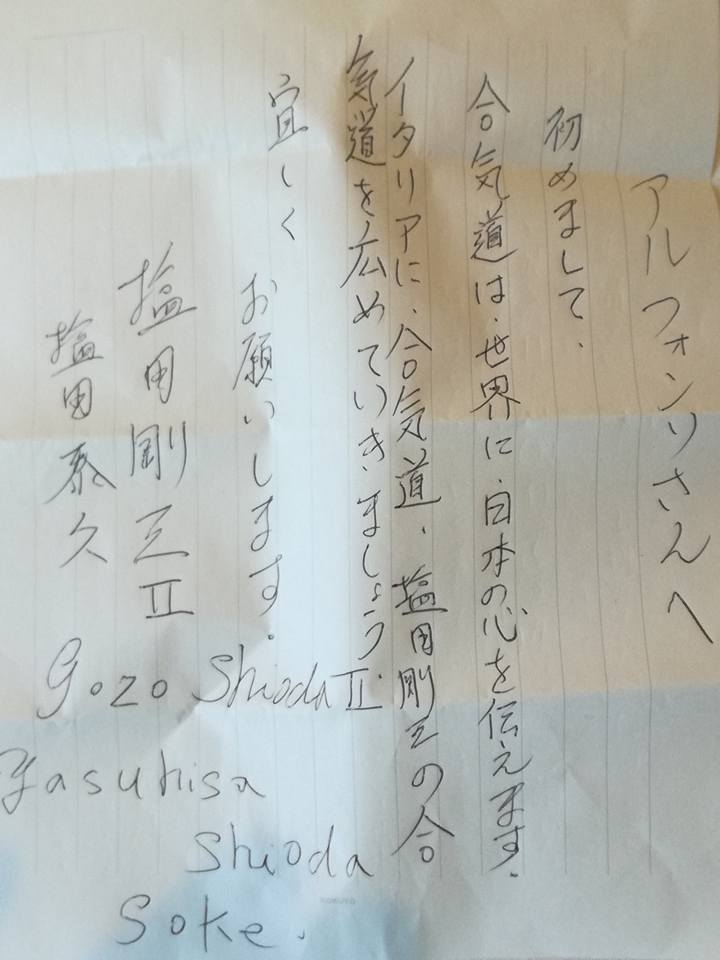 アルフォンソさんへ
初めまして、
合気道は、世界に、日本の心を伝えます。
イタリアに、合気道、塩田剛三の合
気道を広めていきましょう
宜しく
お願いします。
塩田剛三II
塩田泰久
Gozo Shioda II
Yasuhisa
Shioda
Soke.
KOKUYO